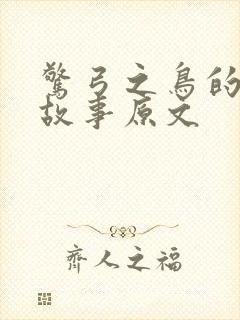 驚弓之鳥的
故事原文
齊人之福